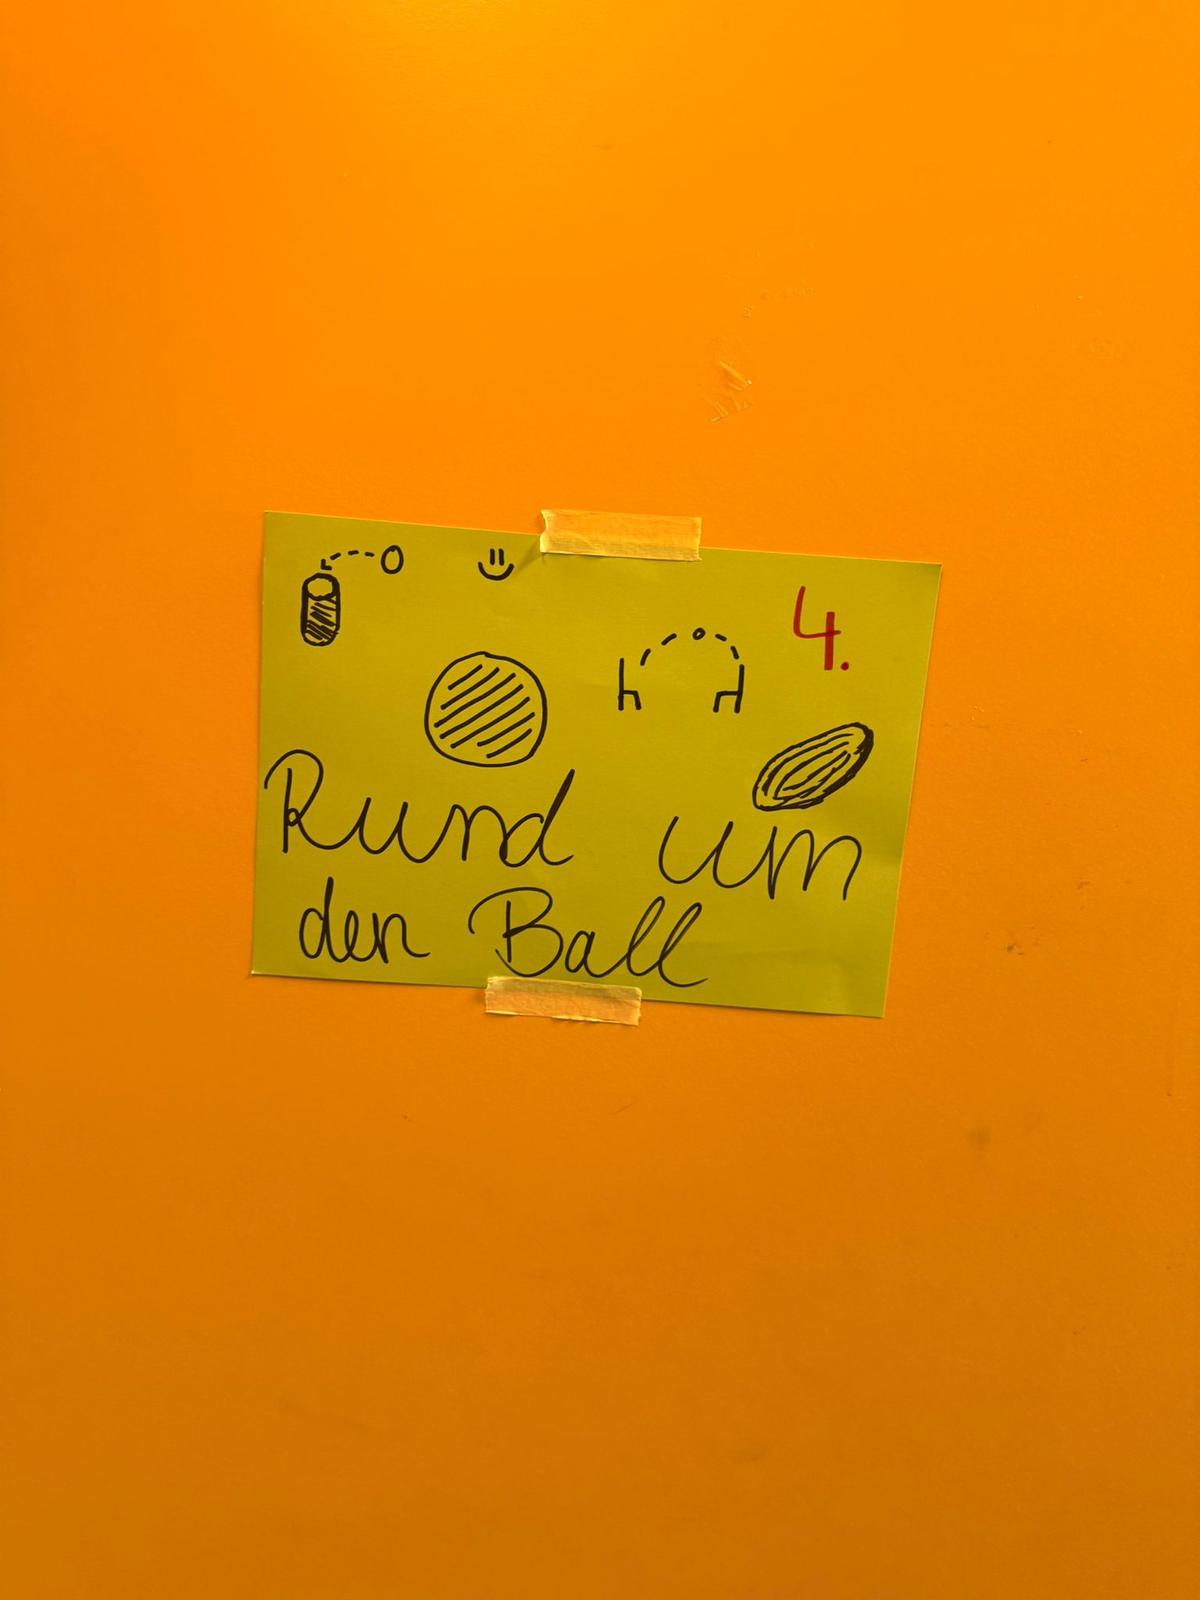 4.
Rund um
den Ball